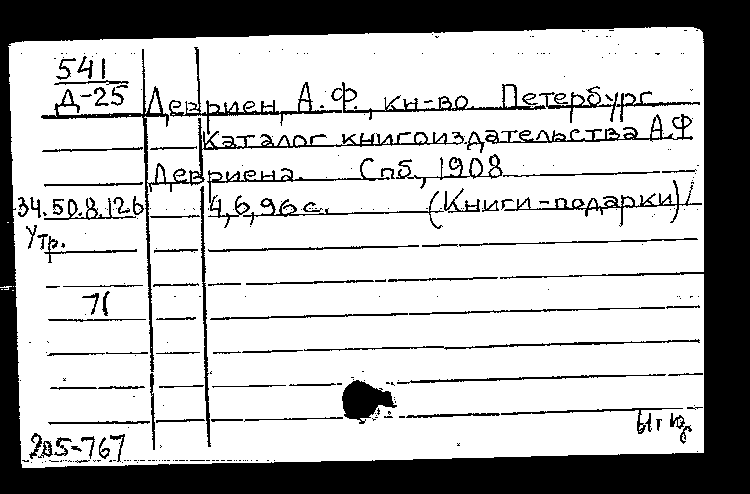 541
Д-25 Девриен, А.Ф., кн-во. Петербург
Каталог книгоиздательства А.Ф
Девриена. Спб., 1908
34.50.8.126 4,6,96с. (Книги-подарки)/
Утр.
71
205-767